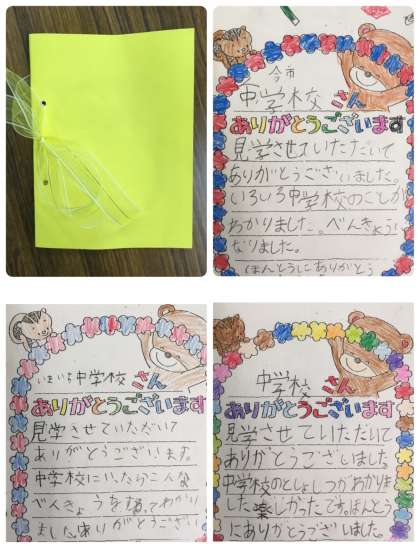 今市
中学校さん
ありがとうございます
見学させていただいて
ありがとうございました。
いろいろ中学校のことが
わかりました。べんきょうに
なりました。
ほんとうにありがとう
いまいち中学校さん
ありがとうございます
見学させていただいて
ありがとうございます。
中学校にいったらこんな
べんきょうをするってわかり
ました。ありがとうござい
中学校さん
ありがとうございます
見学させていただいて
ありがとうございました。
中学校のとしょしつがわかりま
した楽しかったです。ほんとう
にありがとうございました。